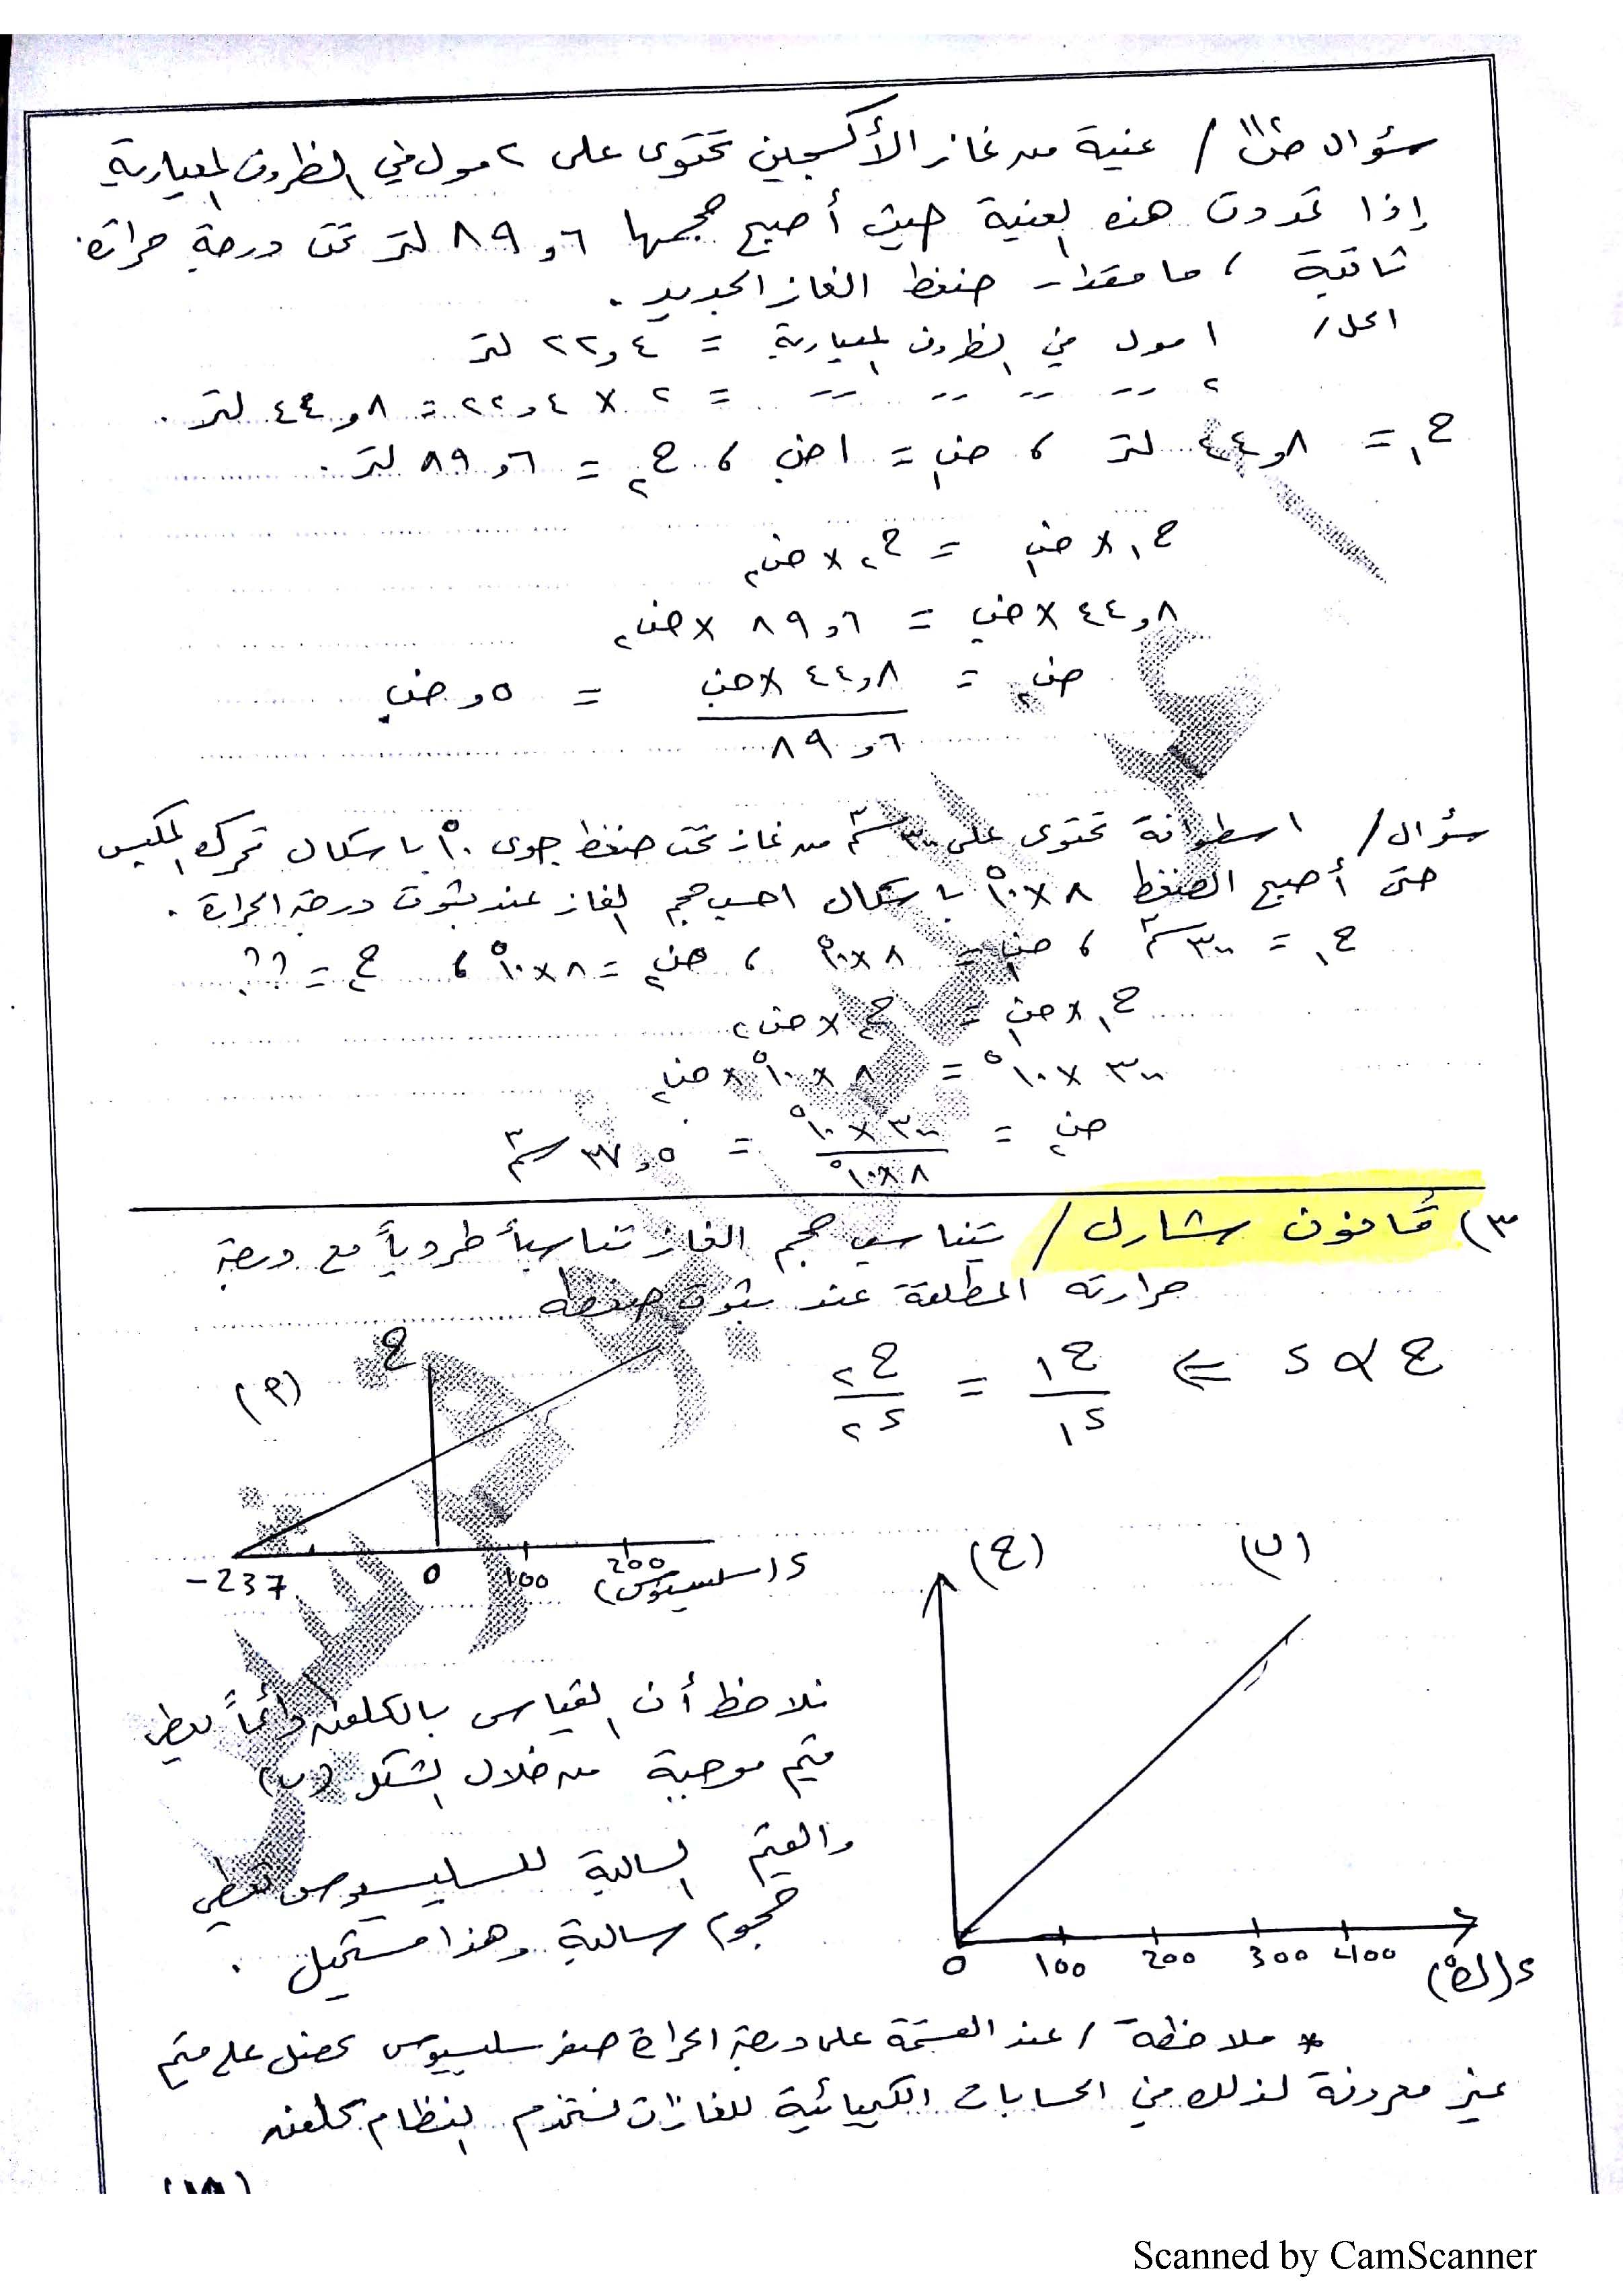 سؤال ص١١٢ / عينة من غاز الأكسجين تحتوى على ٢ مول في الظروف المعيارية
إذا تمددت هذه العينة حيث أصبح حجمها ٨٩,٦ لتر تحت درجة حرارة
ثابتة ، ما مقدار ضغط الغاز الجديد .
الحل/ ١ مول في الظروف المعيارية = ٢٢,٤ لتر
٢ -- -- -- -- = ٢ × ٢٢,٤ = ٤٤,٨ لتر .
ح١ = ٤٤,٨ لتر ، ض١ = ١ ض ، ح٢ = ٨٩,٦ لتر .
ح١ × ض١ = ح٢ × ض٢
٤٤,٨ × ض١ = ٨٩,٦ × ض٢
ض٢ = ٤٤,٨ × ض١ / ٨٩,٦ = ٥, ض١
سؤال / اسطوانة تحتوى على ٣٠٠ سم٣ من غاز تحت ضغط جوى ١٠^٥ باسكال تحرك المكبس
حتى أصبح الضغط ٨ × ١٠^٥ باسكال احسب حجم الغاز عند ثبوت درجة الحرارة .
ح١ = ٣٠٠ سم٣ ، ض١ = ٨ × ١٠^٥ ، ض٢ = ٨ × ١٠^٥ ، ح٢ = ؟؟
ح١ × ض١ = ح٢ × ض٢
٣٠٠ × ١٠^٥ = ٨ × ١٠^٥ × ض٢
ض٢ = ٣٠٠ × ١٠^٥ / ٨ × ١٠^٥ = ٣٧,٥ سم٣
٣) قانون شارل / يتناسب حجم الغاز تناسباً طردياً مع درجة
حرارته المطلقة عند ثبوت ضغطه
ح α د ⇐ ح١ / د١ = ح٢ / د٢
ح
(٩)
-237 0 100 200 د (سلسيوس)
(ح) (ب)
نلاحظ أن القياس بالكلفن دائماً يعطي
قيم موجبة من خلال الشكل (ب)
والقيم السالبة للسليسيوس تعطي
حجوم سالبة وهذا مستحيل .
0 100 200 300 400 د (ك°)
* ملاحظة / عند القسمة على درجة الحرارة صفر سلسيوس نحصل على قيم
غير معروفة لذلك في الحسابات الكيميائية للغازات نستخدم النظام كلفن
(١٨)
Scanned by CamScanner